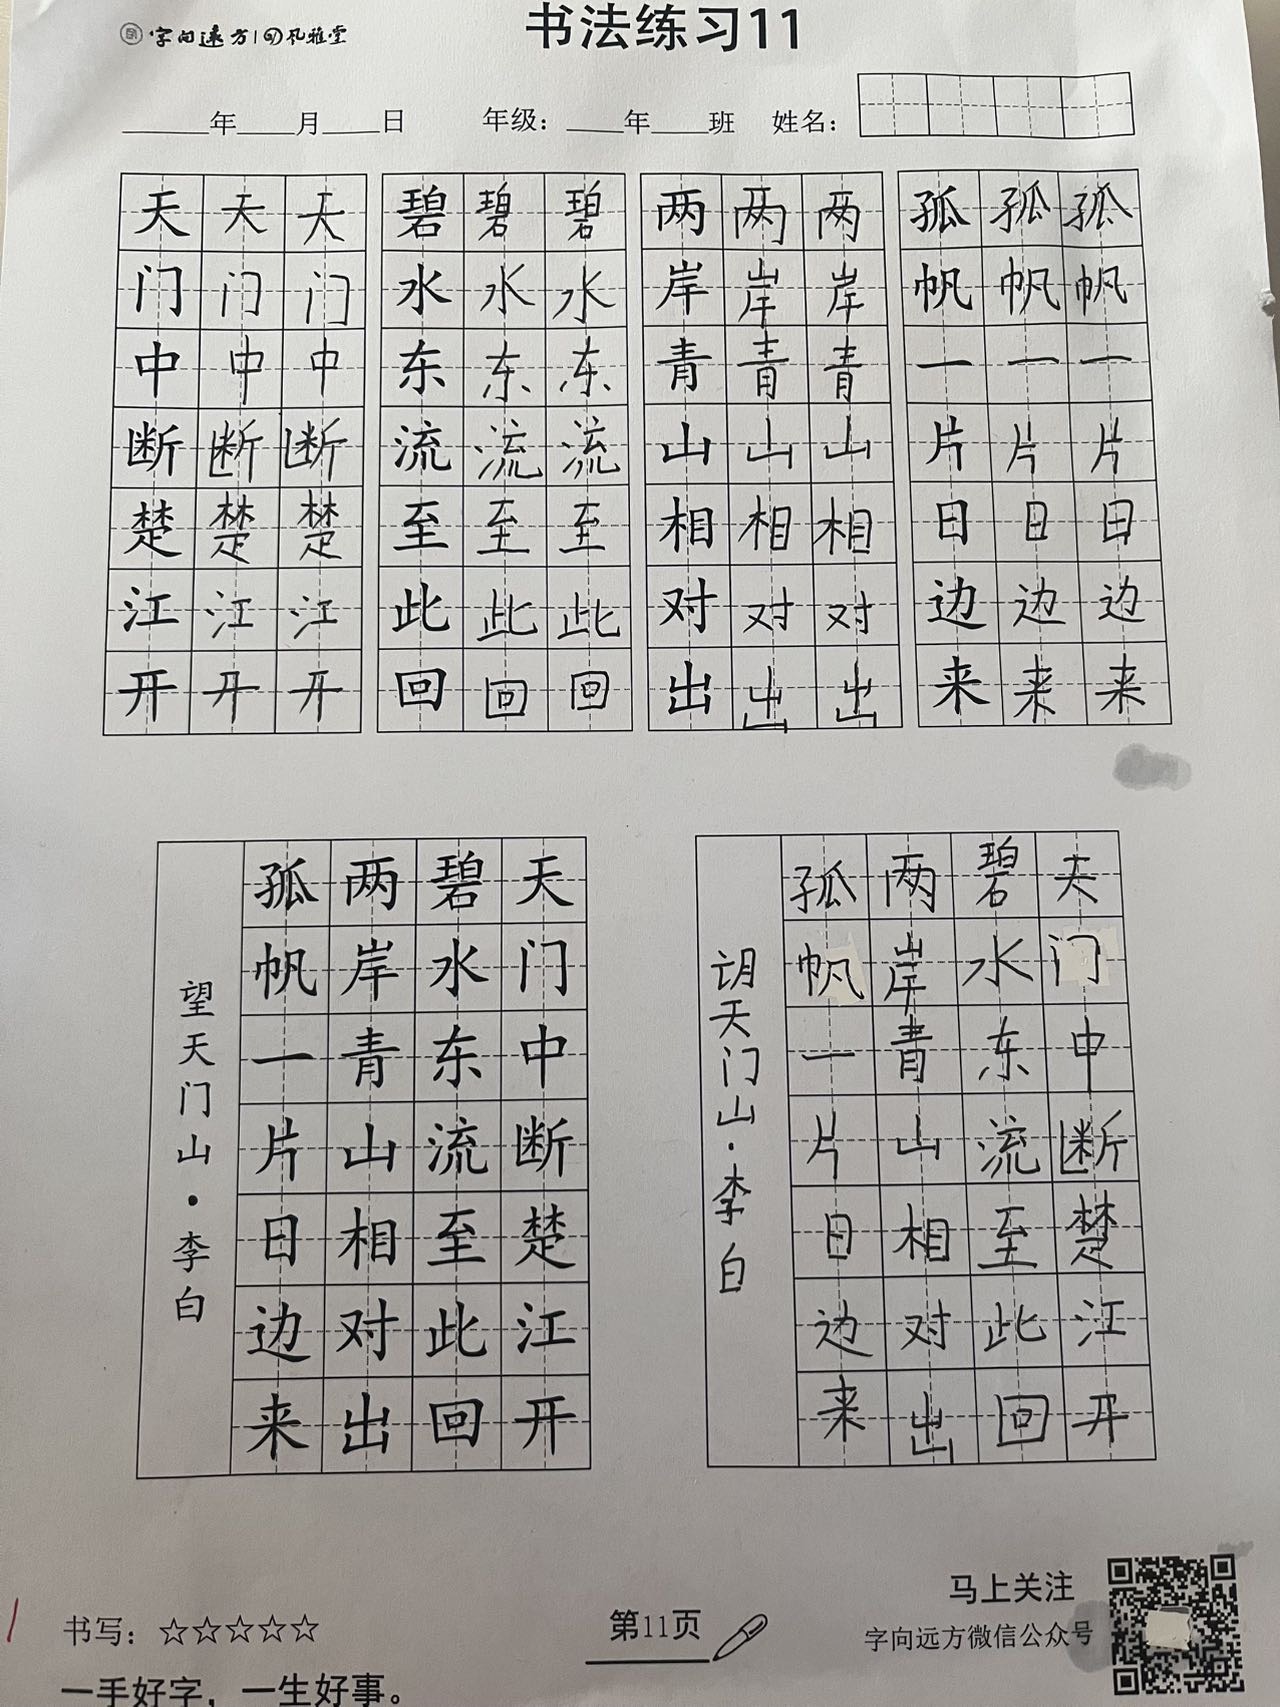 字向远方 风雅堂
书法练习11
年 月 日 年级: 年 班 姓名:
天天天 碧碧碧 两两两 孤孤孤
门门门 水水水 岸岸岸 帆帆帆
中中中 东东东 青青青 一一一
断断断 流流流 山山山 片片片
楚楚楚 至至至 相相相 日日日
江江江 此此此 对对对 边边边
开开开 回回回 出出出 来来来
天门中断楚江开
碧水东流至此回
两岸青山相对出
孤帆一片日边来
望天门山·李白
天门中断楚江开
碧水东流至此回
两岸青山相对出
孤帆一片日边来
天门山·李白
马上关注
字向远方微信公众号
书写:☆☆☆☆☆
第11页
一手好字,一生好事。